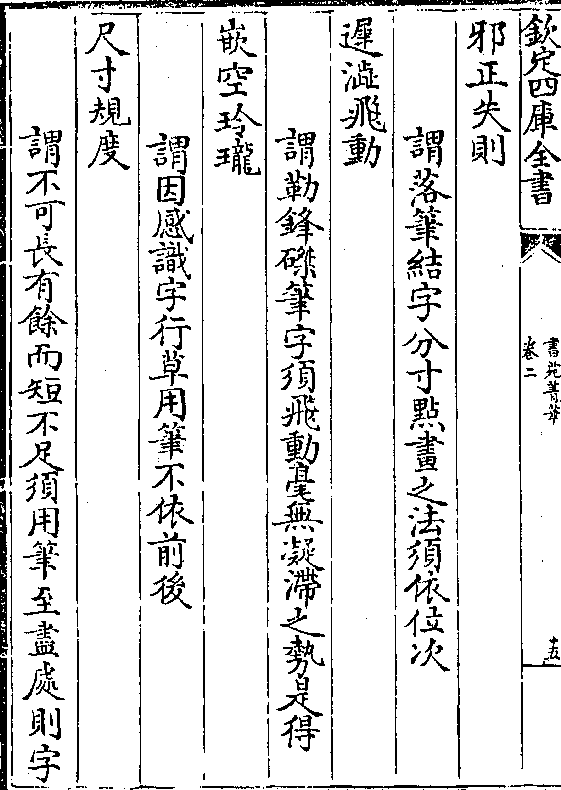 欽定四庫全書
書苑菁華
卷二
十五
邪正失則
謂落筆結字分寸點畫之法須依位次
遲澁飛動
謂勒鋒磔筆字須飛動毫無凝滯之勢是得
嵌空玲瓏
謂因感識字行草用筆不依前後
尺寸規度
謂不可長有餘而短不足須用筆至盡處則字